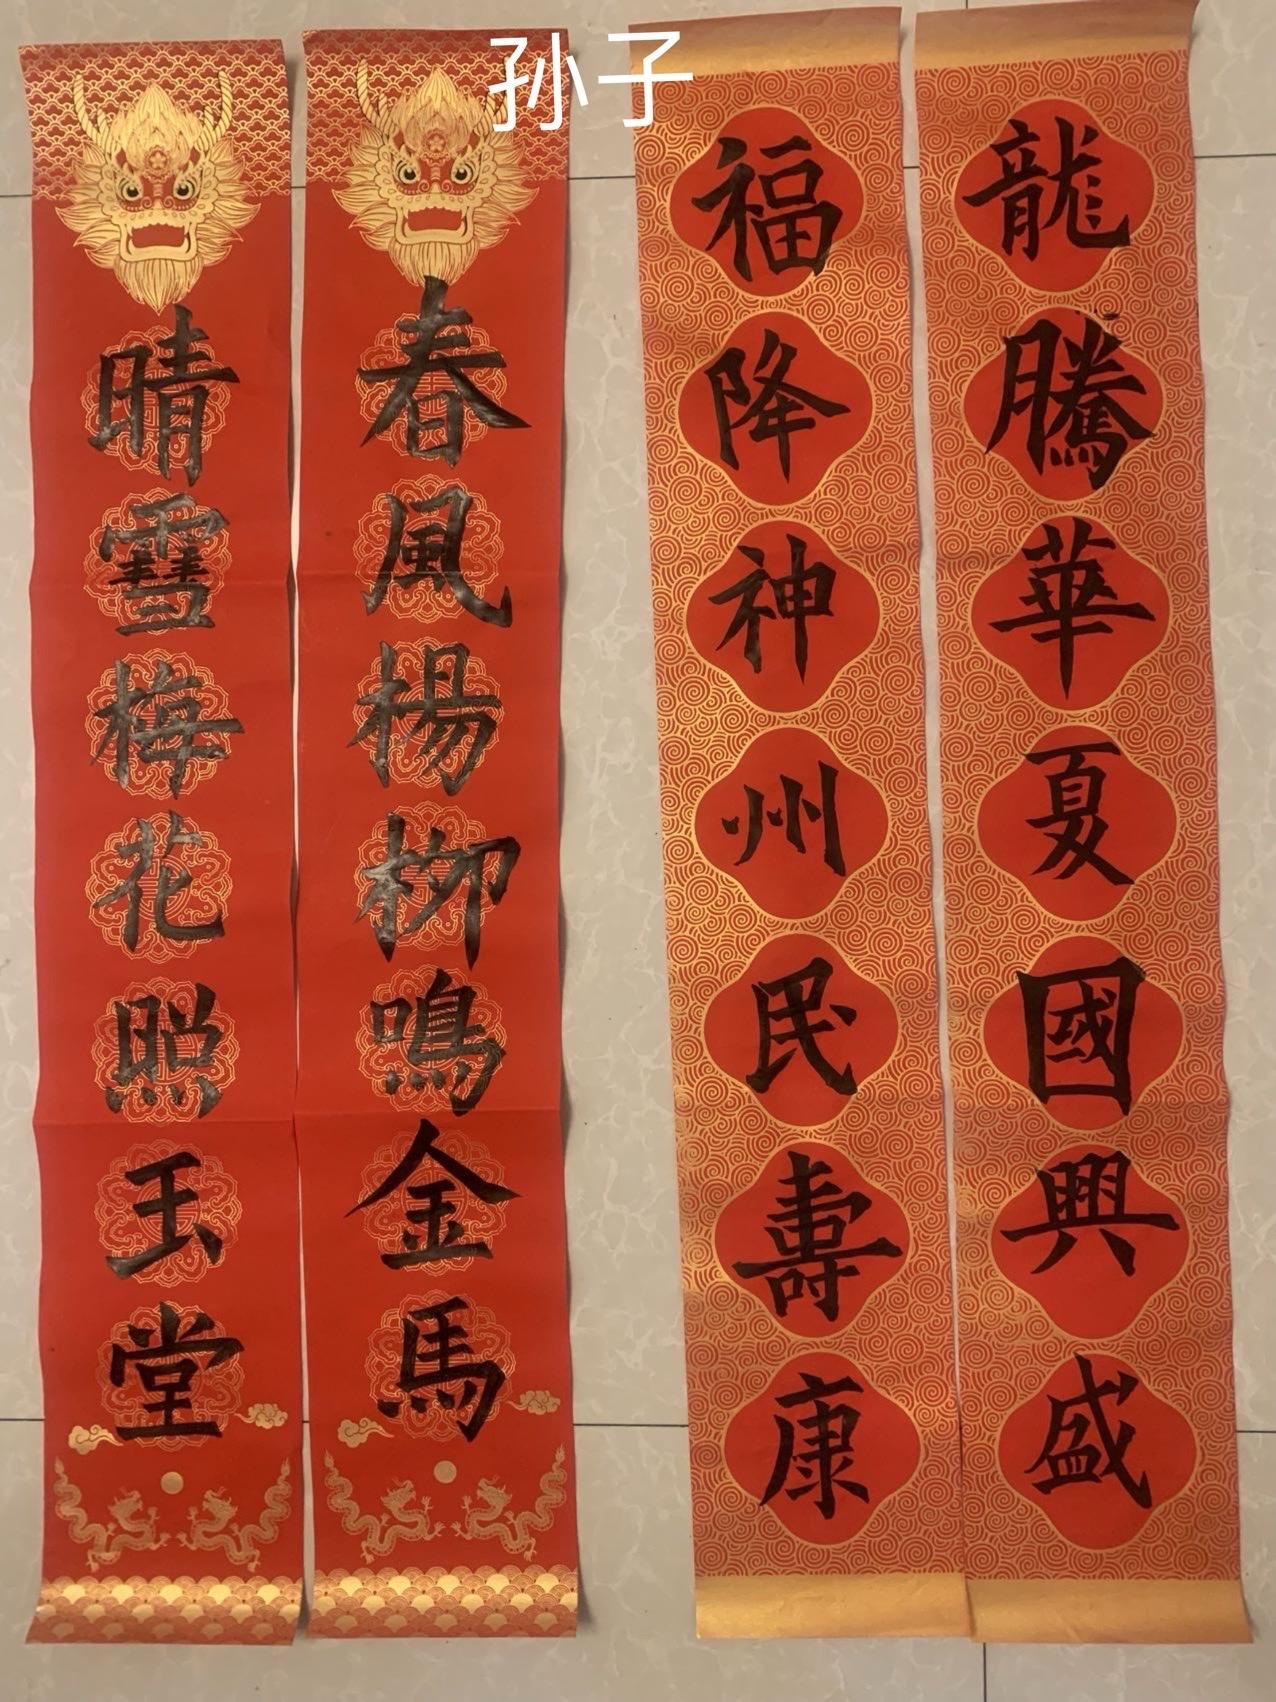 孙子
龍騰華夏國興盛
福降神州民壽康
春風楊柳鳴金馬
晴雪梅花照玉堂